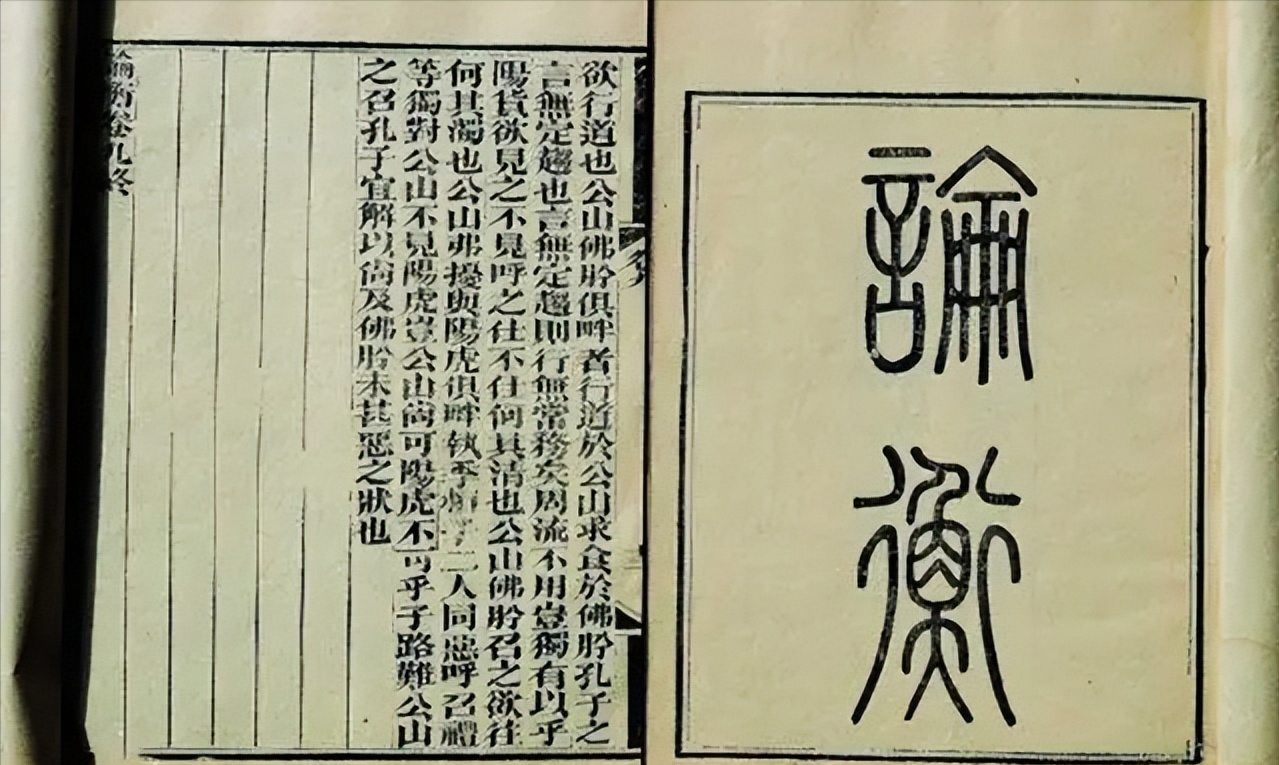 論衡
欲行道也公山佛肸俱畔者行道於公山求食於佛肸孔子之
言無定趨也言無定趨則行無常務矣周流不用豈獨有以乎
陽貨欲見之不見呼之仕不仕何其清也公山佛肸召之欲往
何其濁也公山弗擾與陽虎俱畔執季二人同惡呼召禮
等獨對公山不見陽虎豈公山尚可陽虎不可乎子路難公山
之召孔子宜解以尚及佛肸未甚惡之狀也
論衡卷九終